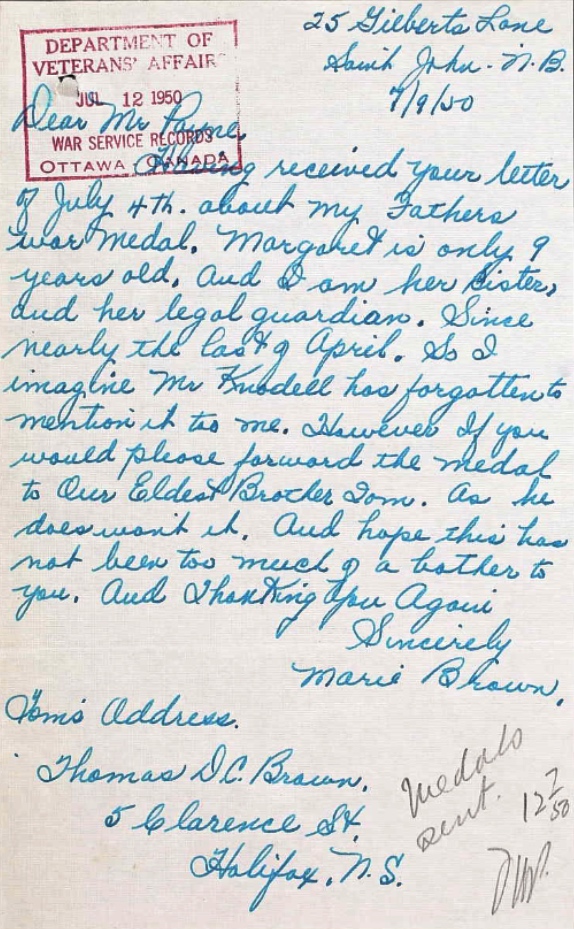 25 Gilberts Lane
Saint John - N.B.
7/9/50
DEPARTMENT OF
VETERANS' AFFAIRS
JUL 12 1950
WAR SERVICE RECORDS
OTTAWA CANADA
Dear Mr Payne,
Having received your letter
of July 4th. about my Fathers
war medal. Margaret is only 9
years old. And I am her sister,
and her legal guardian. Since
nearly the last of April. So I
imagine Mr Knodell has forgotten to
mention it too me. However If you
would please forward the medal
to Our Eldest Brother Tom. As he
does want it. And hope this has
not been too much of a bother to
you. And Thanking You Again
Sincerely
Marie Brown.
Tom's Address.
Thomas D.C. Brown.
5 Clarence St.
Halifax, N.S.
Medals
sent.
12 7/50